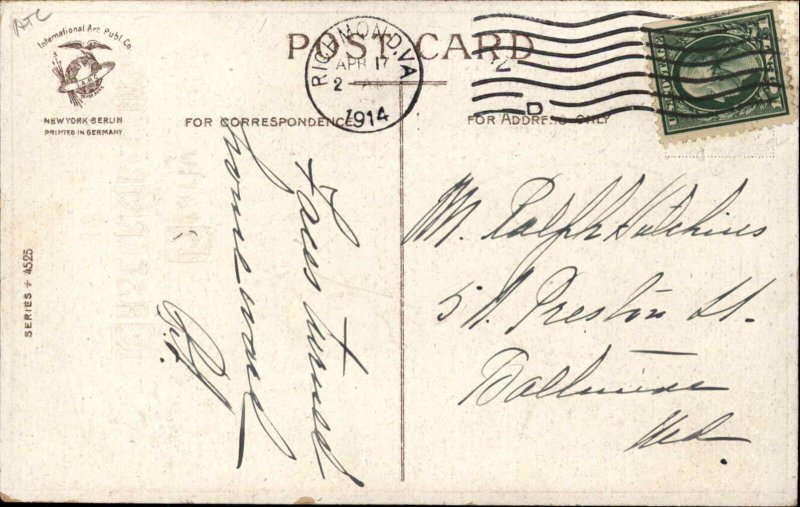 ATC
International Art Publ. Co.
NEW YORK-BERLIN
PRINTED IN GERMANY
POST CARD
RICHMOND, VA
APR 17
2 A
1914
D
FOR CORRESPONDENCE
FOR ADDRESS ONLY
SERIES 4525
Face turned
homeward
Mr. Ralph Hutchins
5 W. Preston St.
Baltimore
Md.